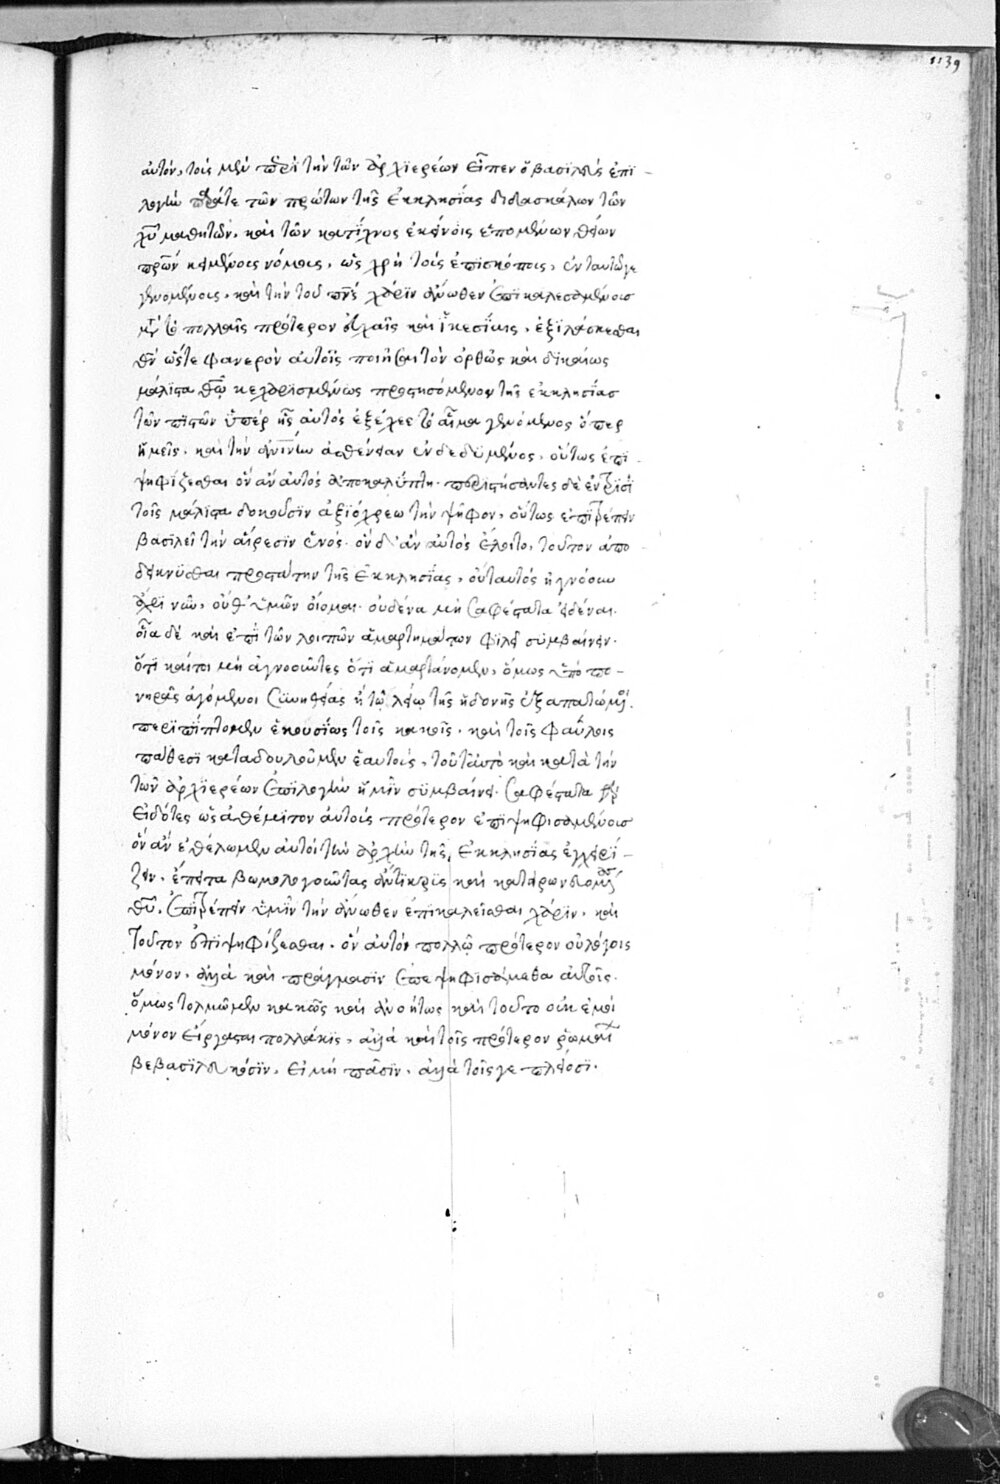 1139
αὐτόν, τοὺς μὲν περὶ τὴν τῶν ἀρχϊερέων εἶπεν ὁ βασϊλεὺς ἐπϊ-
λογὴν παρά τε τῶν πρώτων τῆς ἐκκλησΐας διδασκάλων τῶν
χυ μαθητῶν, καὶ τῶν κατΐχνος ἐκείνοις ἑπομένων θείων
πρων κειμένοις νόμοις, ὡς χρὴ τοῖς ἐπϊσκόποις, ἐν ταυτῶ γε
γενομένοις, καὶ τὴν τοῦ πνς χάρϊν ἄνωθεν ἐπϊκαλεσομένοις
μετὰ τὸ πολλαῖς πρότερον εὐχαῖς καὶ ἱκεσΐαις, ἐξϊλάσκεσθαι
θν ὥστε φανερὸν αὐτοῖς ποιῆσαι τὸν ὀρθῶς καὶ δϊκαίως
μάλϊστα θῶ κεχαρϊσμένως προστησόμενον τῆς ἐκκλησΐας
τῶν πϊστῶν ὑπὲρ ἧς αὐτὸς ἐξέχεε τὸ αἷμα γενόμενος ὅπερ
ἡμεῖς, καὶ τὴν ἀνίνην ἀσθένειαν ἐνδεδυμένος, οὕτως ἐπϊ-
ψηφίζεσθαι ὃν ἂν αὐτὸς ἀποκαλύπτη. ποριστήσαντες δὲ ἐν τρϊσὶ
τοῖς μάλϊστα δοκοῦσϊν ἀξϊόχρεω τὴν ψῆφον, οὕτως ἐπϊτρέπειν
βασϊλεῖ τὴν αἵρεσϊν ἑνός. ὃν δ' ἂν αὐτὸς ἕλοιτο, τοῦτον ἀπο-
δείκνυσθαι προστάτην τῆς ἐκκλησΐας, οὔτ' αὐτὸς ἠγνόουν
ἄχρϊ νῦν, οὔθ' ὑμῶν οἴομαι οὐδένα μὴ σαφέστατα εἰδέναι.
οἷα δὲ καὶ ἐπϊ τῶν λοιπῶν ἁμαρτημάτων φϊλεῖ συμβαίνειν.
ὅτϊ καίτοι μὴ ἀγνοοῦντες ὅτϊ ἁμαρτάνομεν, ὅμως ὑπὸ πο-
νηρᾶς ἀγόμενοι συνηθείας ἢ τῶ λείω τῆς ἡδονῆς ἐξαπατώμενοι,
περϊπΐπτομεν ἑκουσΐως τοῖς κακοῖς, καὶ τοῖς φαύλοις
πάθεσϊ καταδουλοῦμεν ἑαυτούς, τοῦτ' αὐτὸ καὶ κατὰ τὴν
τῶν ἀρχϊερέων ἐπϊλογὴν ἡμῖν συμβαίνει. σαφέστατα γὰρ
εἰδότες ὡς ἀθέμϊτον αὐτοὺς πρότερον ἐπϊψηφισαμένους
ὃν ἂν ἐθέλωμεν αὐτοὶ τὴν ἀρχὴν τῆς ἐκκλησΐας ἐγχειρΐ-
ζειν, ἔπειτα βωμολογοῦντας ἄντϊκρϊς καὶ κατειρωνευομένους
θυ, ἐπϊτρέπειν ὑμῖν τὴν ἄνωθεν ἐπϊκαλεῖσθαι χάρϊν, καὶ
τοῦτον ἐπϊψηφίζεσθαι, ὃν αὐτοὶ πολλῶ πρότερον οὐ λόγοις
μόνον, ἀλλὰ καὶ πράγμασϊν ἐπεψηφϊσάμεθα αὐτοῖς.
ὅμως τολμῶμεν κακῶς καὶ ἀνοήτως καὶ τοῦτο οὐκ ἐμοὶ
μόνον εἴργασται πολλάκϊς, ἀλλὰ καὶ τοῖς πρότερον ῥωμαίων
βεβασϊλευκόσϊν, εἰ μὴ πᾶσϊν, ἀλλὰ τοῖς γε πλείοσϊ.